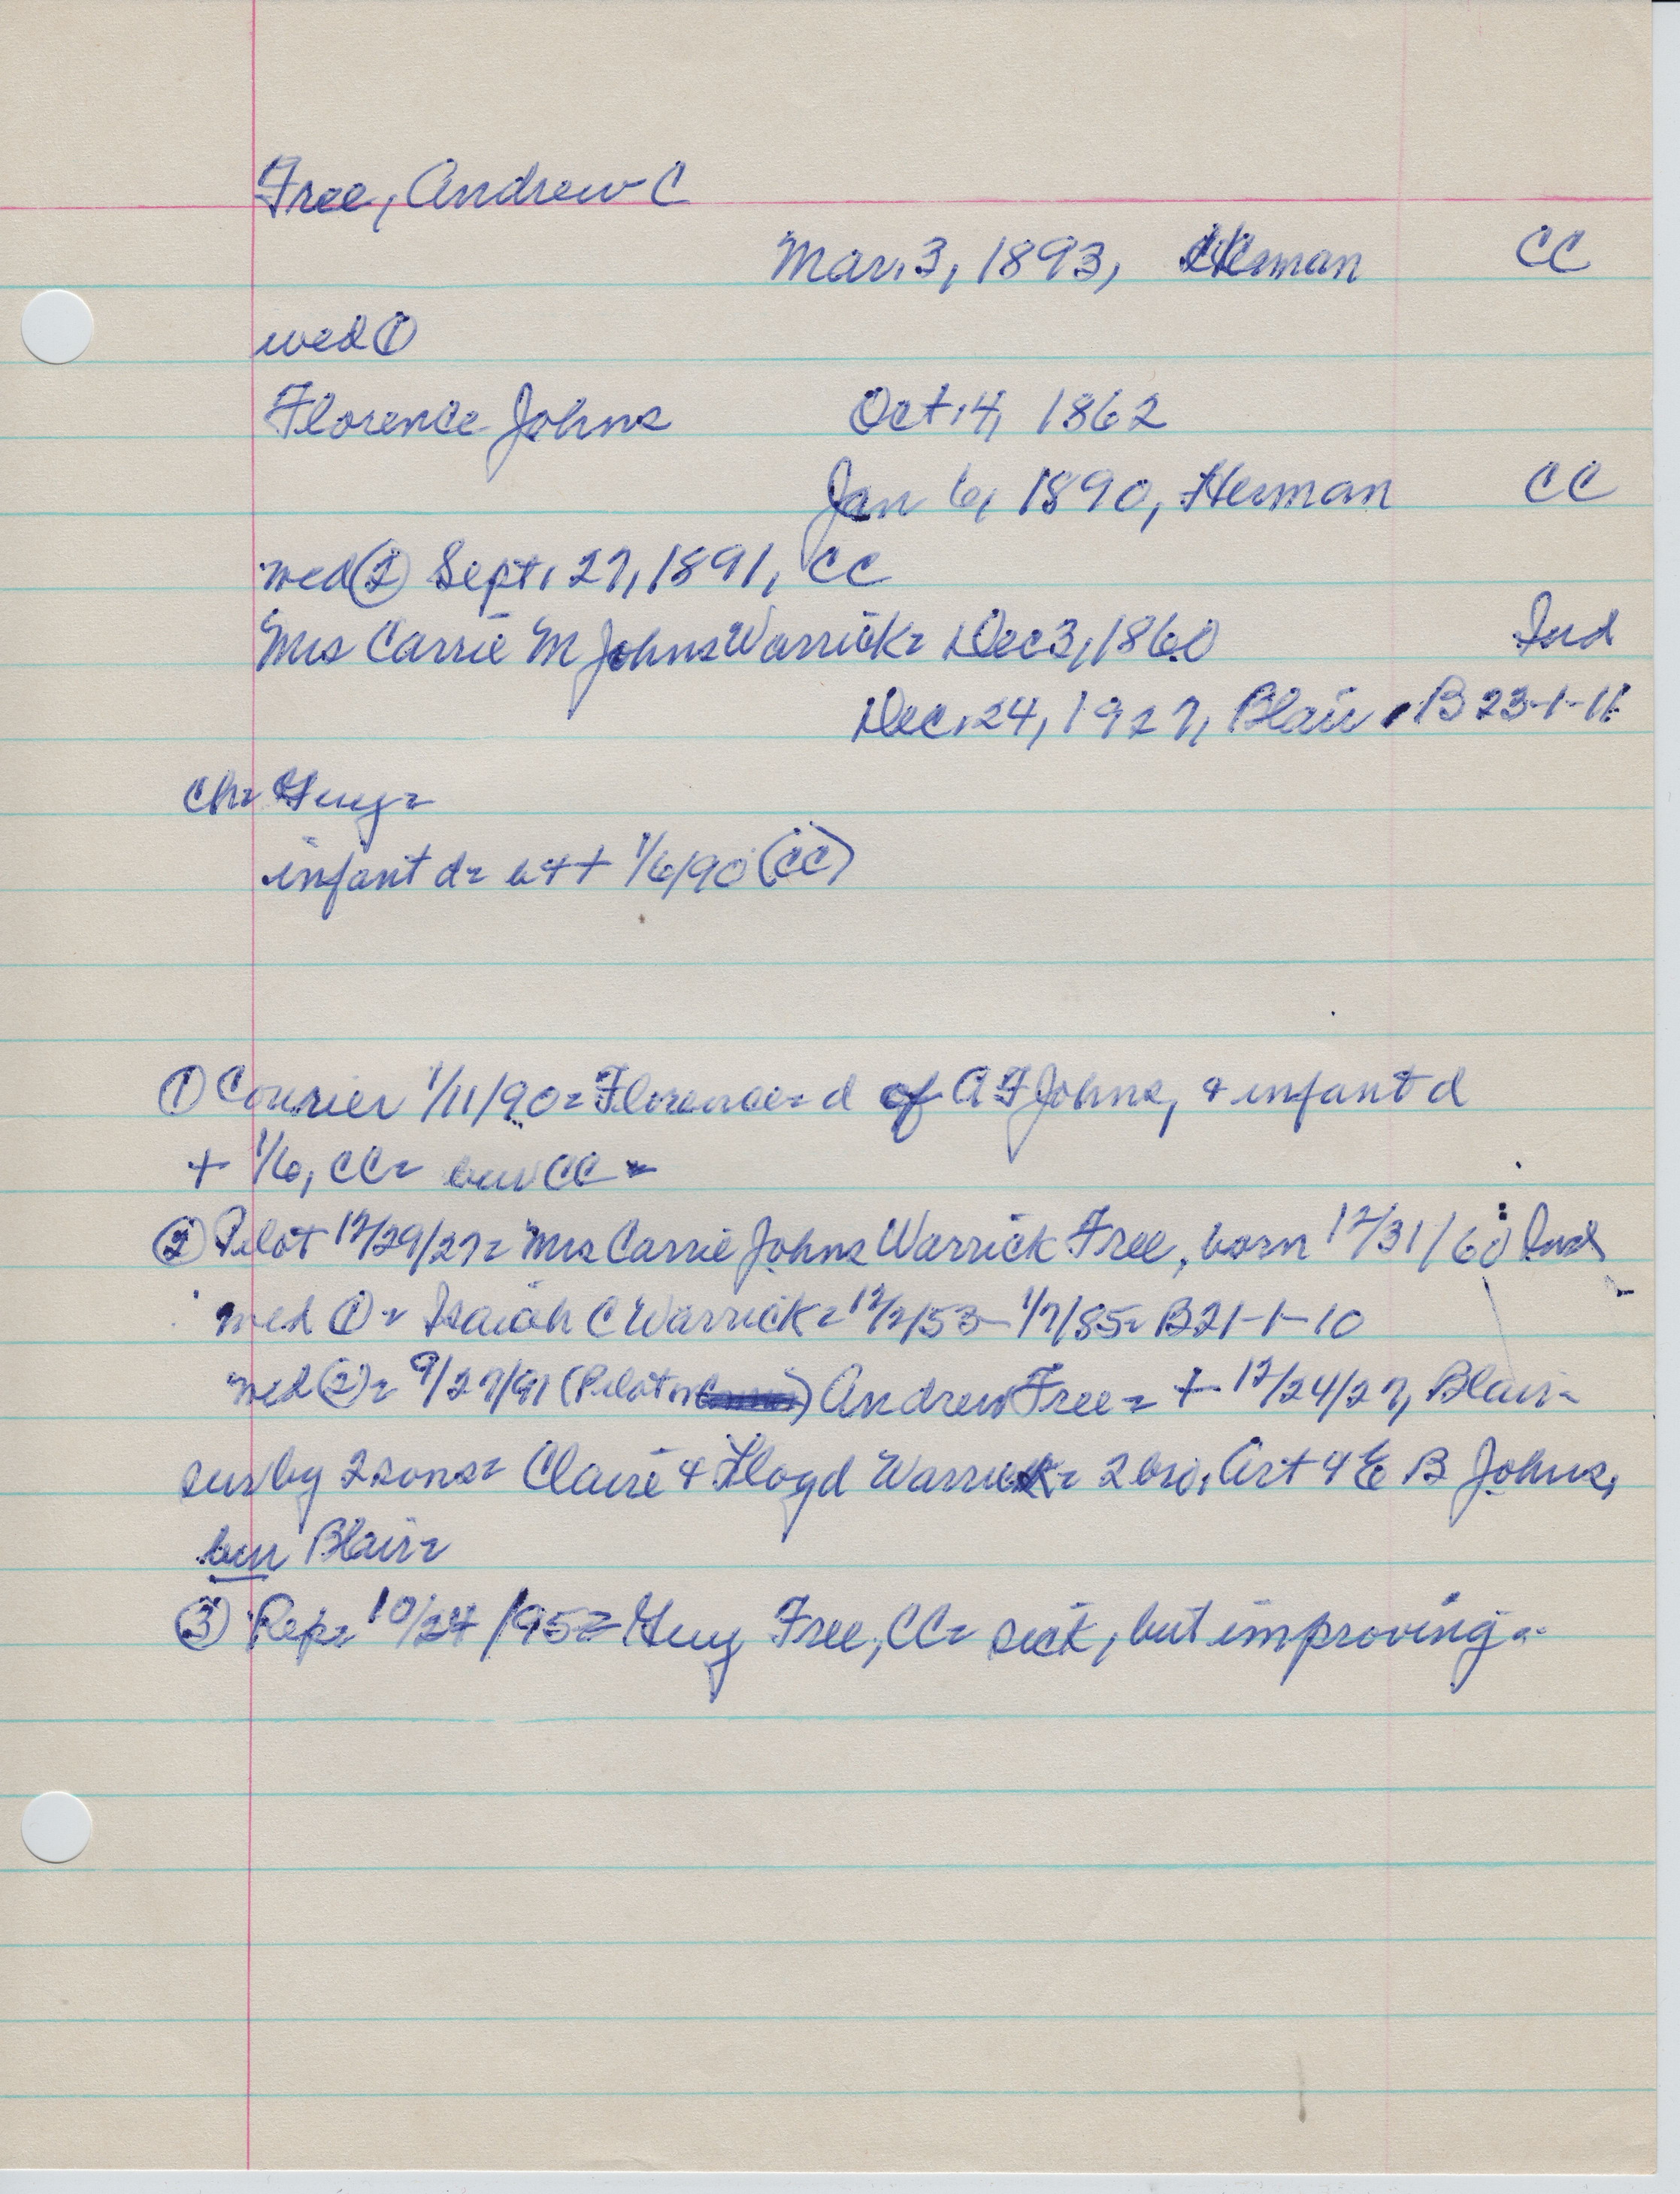 Free, Andrew C
Mar. 3, 1893, Herman CC
wed ①
Florence Johns Oct. 4, 1862
Jan 6, 1890, Herman CC
wed ② Sept. 27, 1891, CC
Mrs Carrie M Johns Warrick= Dec 3, 1860 Ind
Dec. 24, 1927, Blair B 23-1-11
Ch= Guy=
infant d= b & + 1/6/90 (CC)
① Courier 1/11/90= Florence= d of A F Johns, & infant d
+ 1/6, CC= bur CC=
② Pilot 12/29/27= Mrs Carrie Johns Warrick Free, born 12/31/60 Ind
wed ①= Isaiah C Warrick= 12/2/53- 1/7/85= B21-1-10
wed ②= 9/27/91 (Pilot) Andrew Free= + 12/24/27, Blair=
sur by 2 sons= Claire & Floyd Warrick= 2 bro, Art & E B Johns,
bur Blair=
③ Rep= 10/24/95= Guy Free, CC= sick, but improving=